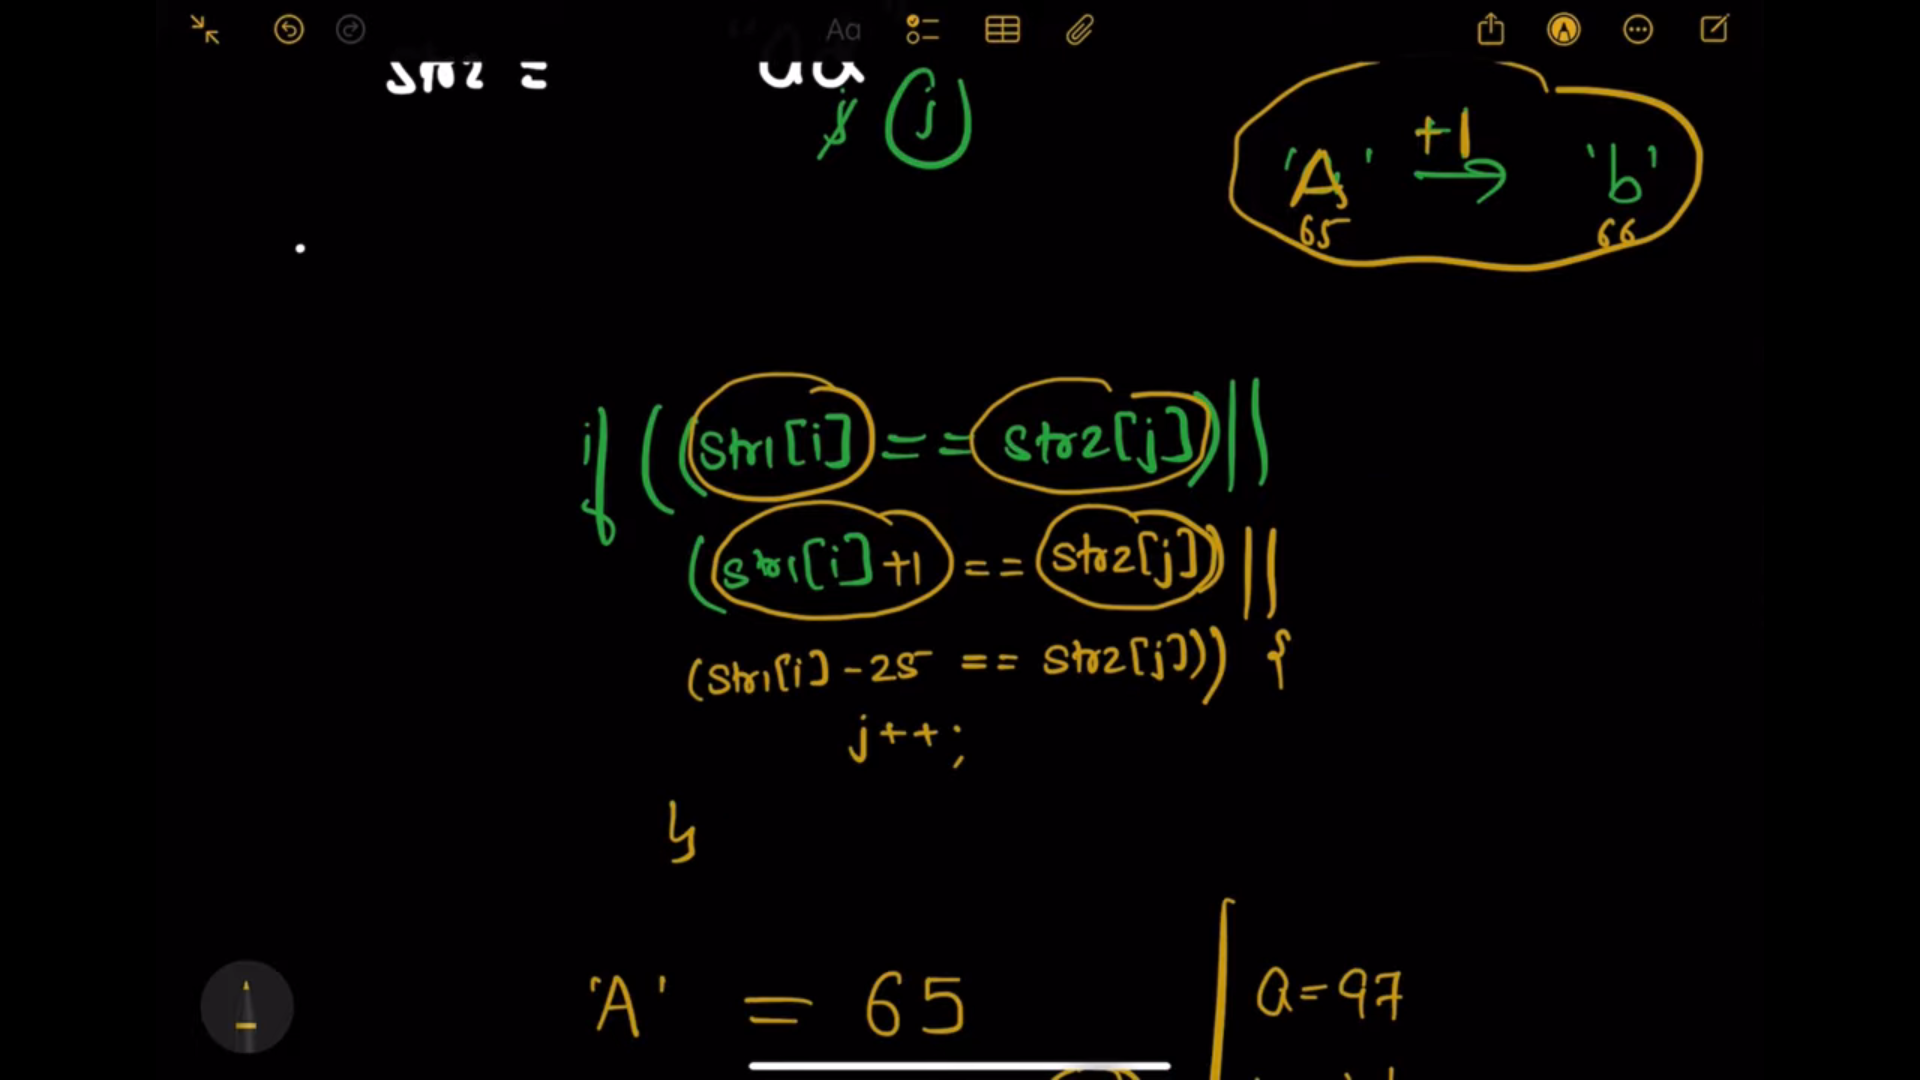 Aa
str2 = "ad"
j j
'A' +1 → 'b'
65 66
if ((str1[i] == str2[j]) ||
(str1[i] +1 == str2[j]) ||
(str1[i] - 25 == str2[j])) {
j++;
}
'A' = 65
a = 97